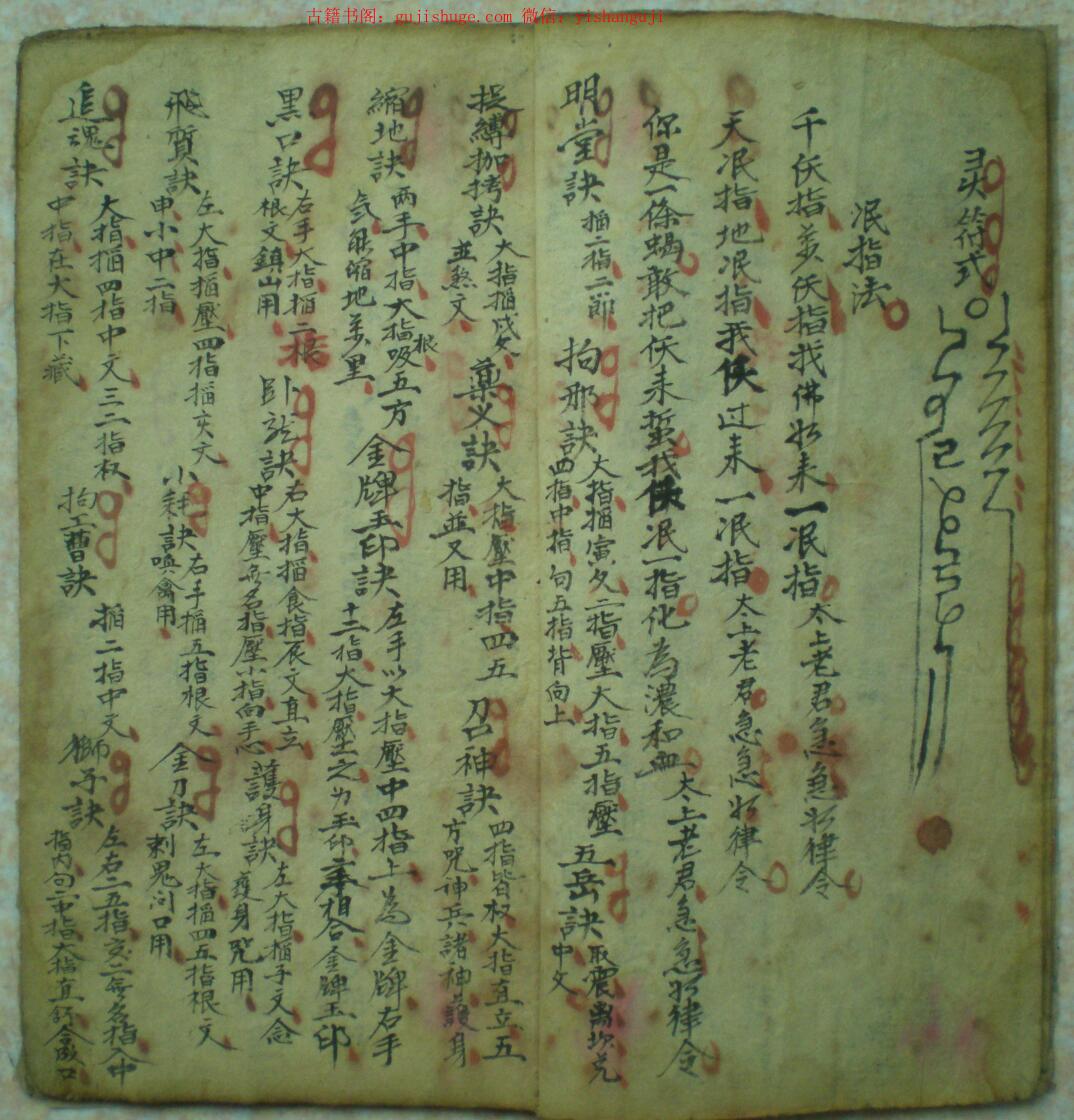 古籍书阁：gujishuge.com 微信：yishanguji
符式
泯指法
千伕指萬伕指我佛如来一泯指太上老君急急如律令
天泯指地泯指我伕过来一泯指太上老君急急如律令
你是一條蝎敢把伕来蜇我伕泯一指化為濃和血太上老君急急如律令
明堂訣 掐二指二節
拘那訣 大指掐寅文二指壓大指五指壓四指中指句五指背向上
五岳訣 取震离坎兑中文
捉縛枷拷訣 大指掐戌文並煞文
藥义訣 大指壓中指四五指並又用
召神訣 四指皆权大指直立五方咒神兵諸神護身
縮地訣 两手中指大指根吸五方炁能缩地萬里
金牌玉印訣 左手以大指壓中四指上為金牌右手十二指大指壓之为玉印 相合金牌玉印
黑口訣 右手大指掐二根根文鎮山用
卧龙訣 右大指掐食指辰文直立中指壓無名指壓小指向手心
護身訣 左大指掐子文念護身咒用
飛質訣 左大指掐壓四指掐亥文申小中二指
小耗訣 右手掐五指根文喚禽用
金刀訣 左大指掐四五指根文刺鬼问口用
追魂訣 大指掐四指中文三二指权中指在大指下藏
拘工曹訣 掐二指中文
獅子訣 左右二五指交二無名指入中指内句二中指大指直舒合成口